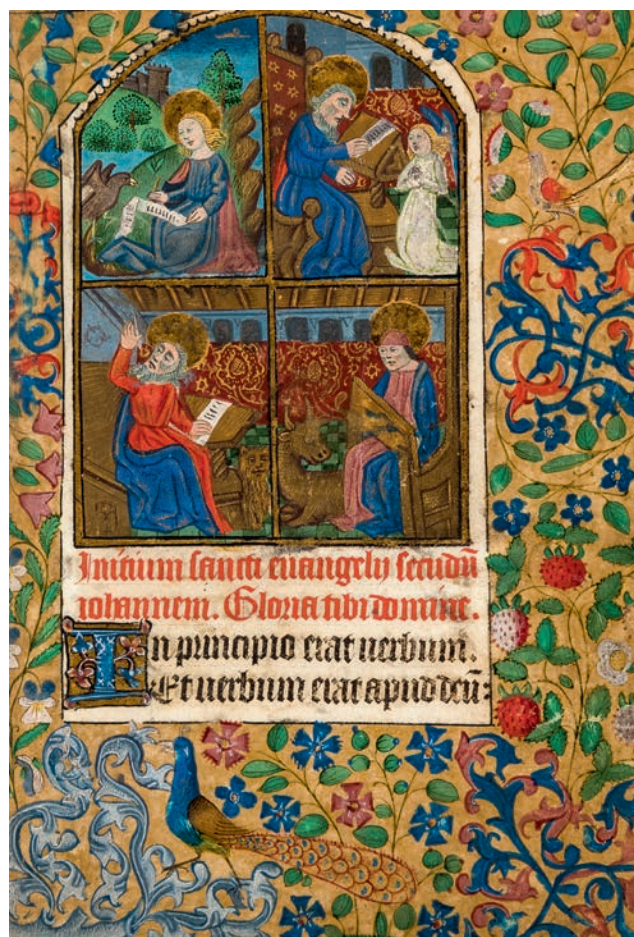 Initium sancti euangelij secūdū
iohannem. Gloria tibi domine.
In principio erat uerbum.
Et uerbum erat apud deū: